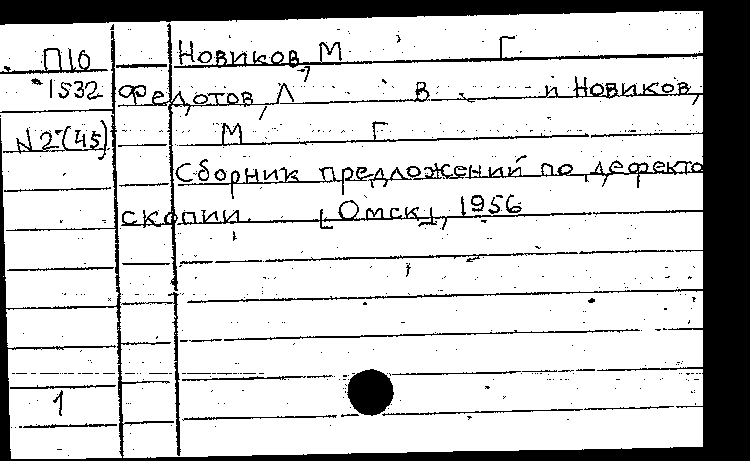 П10 Новиков, М Г
1532 Федотов, Л В. и Новиков,
N2(45) М Г
Сборник предложений по дефекто
скопии. [Омск], 1956
1